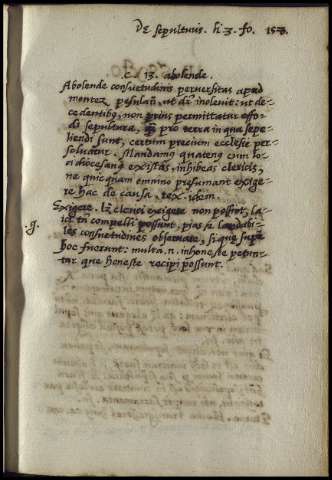 De sepulturis. li. 3. fo. 158.
c. 13. abolende.
Abolende consuetudinis perversitas apud
montez pesulanũ, ut dr̃ inolevit: ut de-
cedentibꝯ, non prius permittatur effo-
di sepultura, qꝫ pro terra in qua sepe-
liendi sunt, certum precium ecclesie per-
solvatur. Mandamꝯ quatenꝯ cum lo-
ci diocesanꝯ existas, inhibeas clericis,
ne quicquam omnino presumant exige-
re hac de causa, rex idem.
Exigere. lꝫ clerici exigere non possint, la-
ici tñ compelli possunt, pias & laudabi-
les consuetudines observare, si que super
.g.
hoc fuerunt: multa .n. inhoneste petun-
tur que honeste recipi possunt.